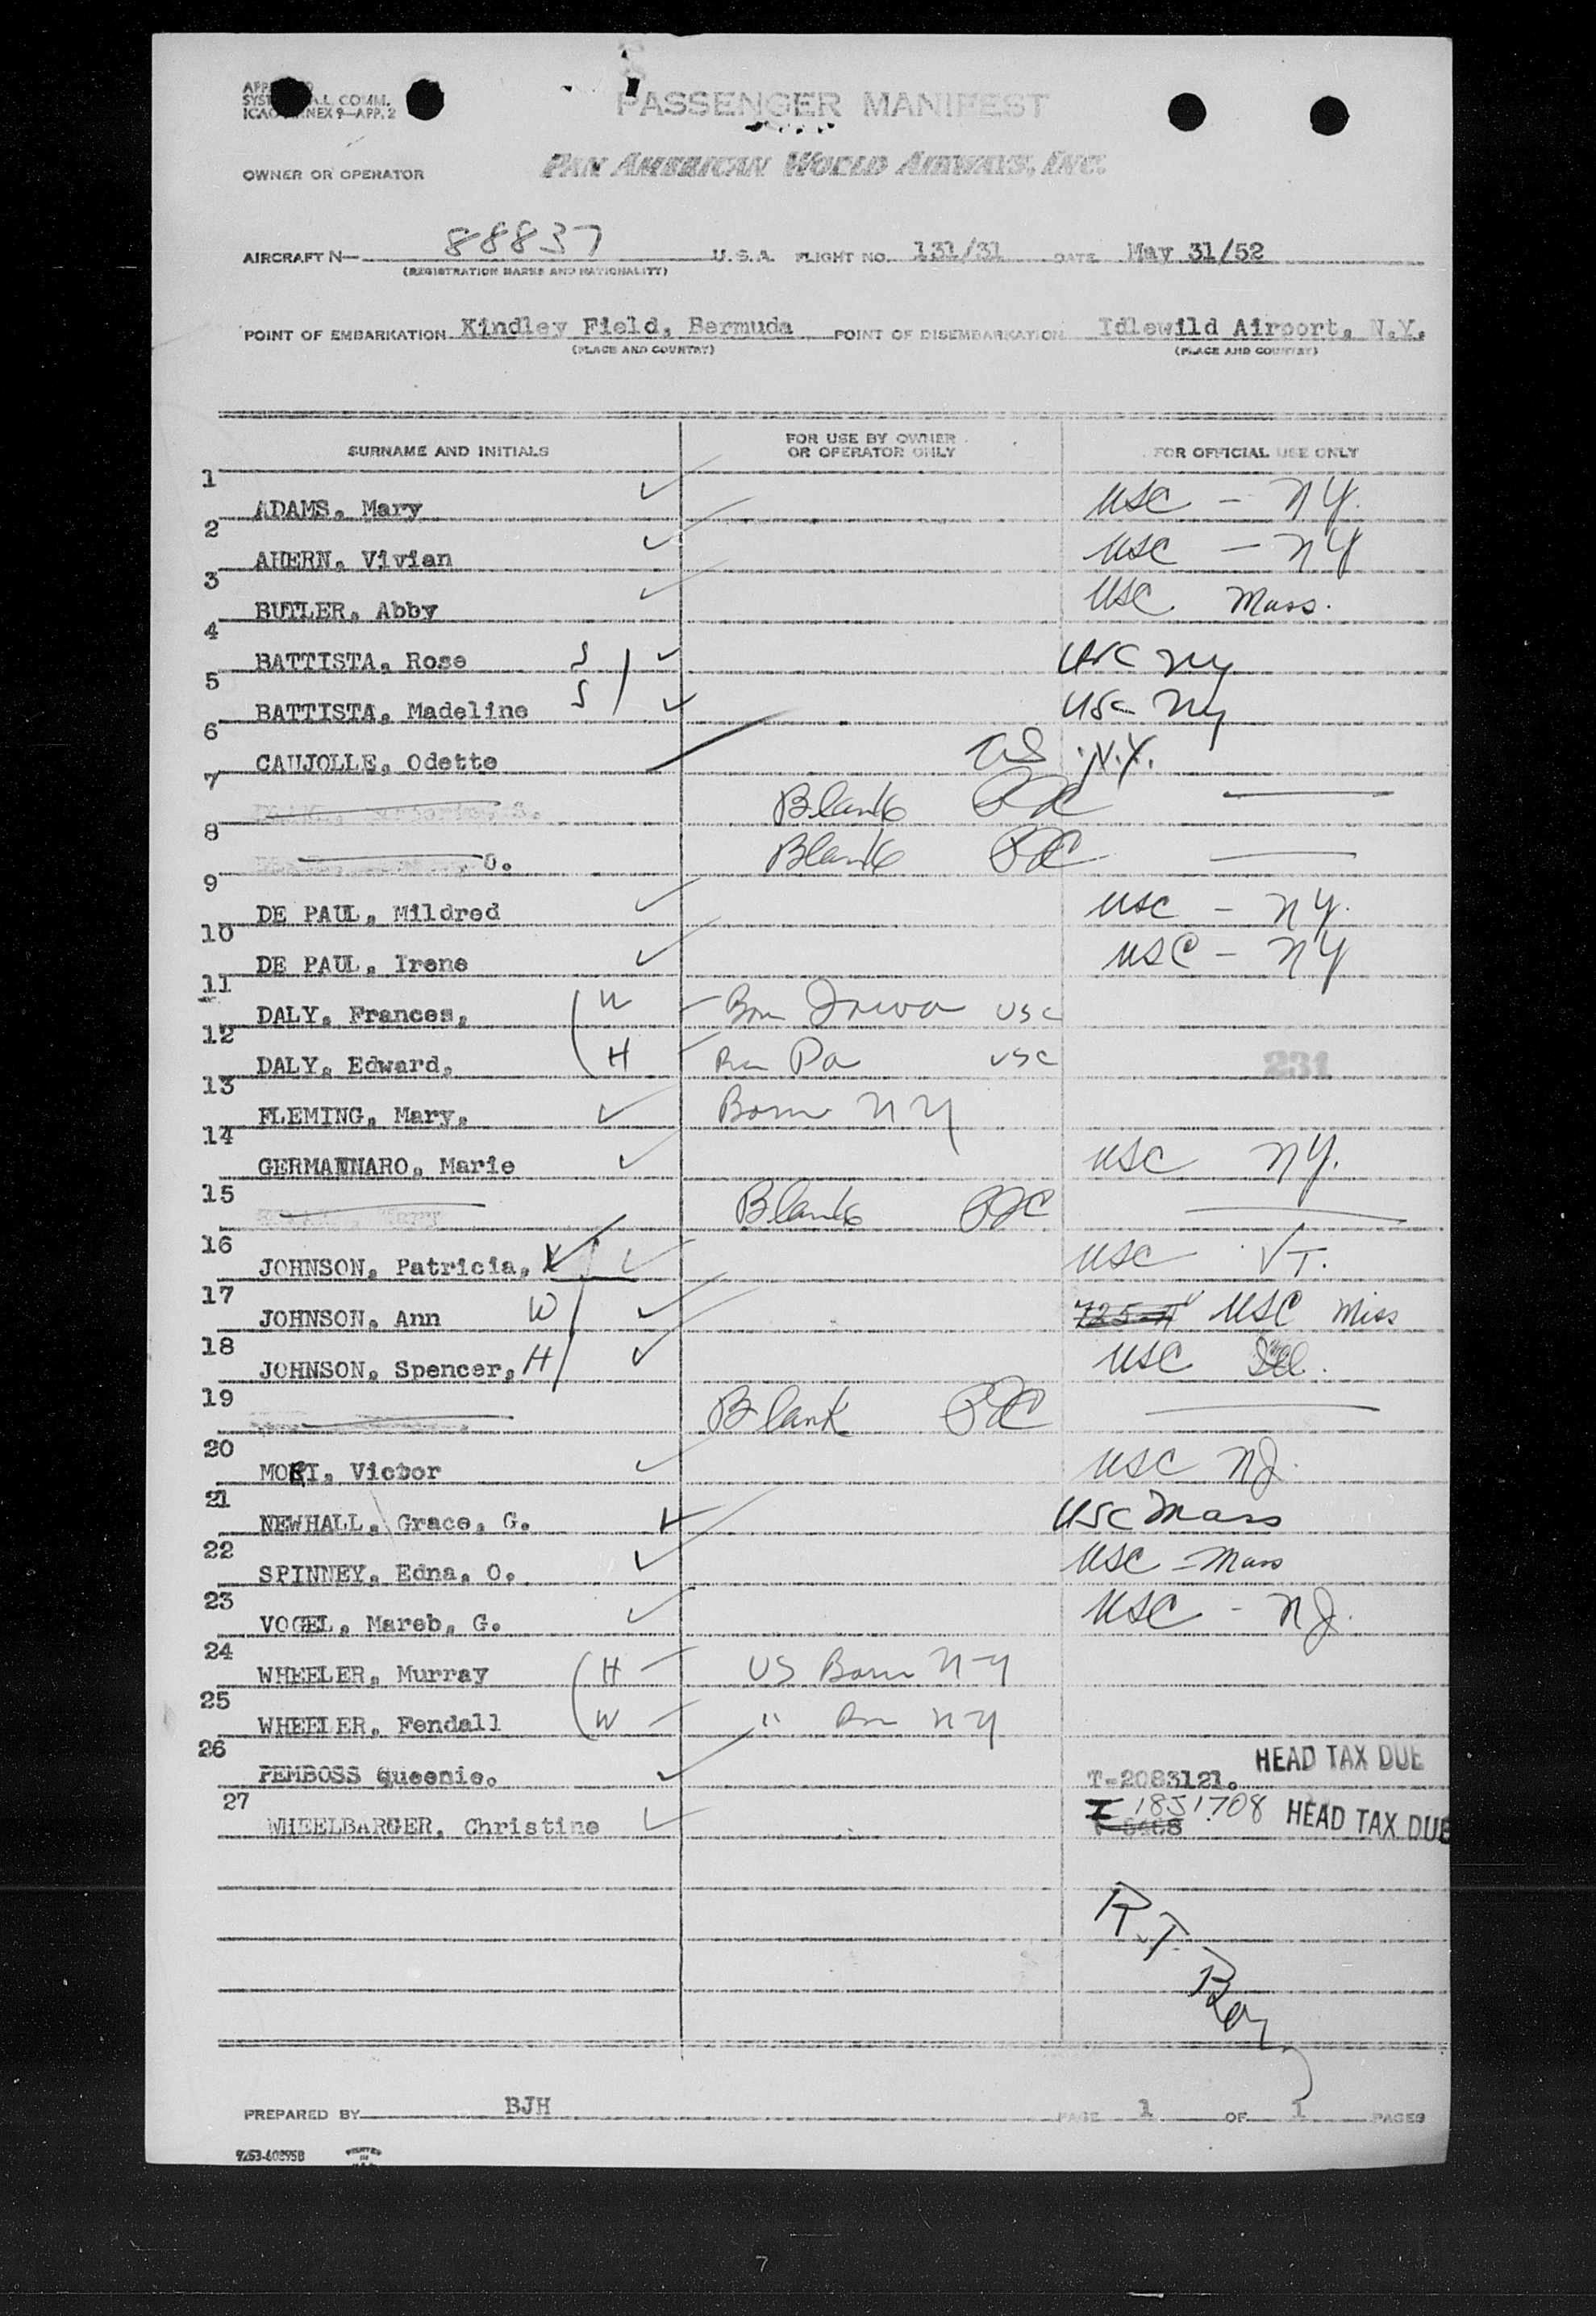 PASSENGER MANIFEST
L COMM.
ICAO ANNEX 9—APP. 2
OWNER OR OPERATOR PAN AMERICAN WORLD AIRWAYS, INC.
AIRCRAFT N— 88837 U.S.A. FLIGHT NO. 131/31 DATE May 31/52
(REGISTRATION MARKS AND NATIONALITY)
POINT OF EMBARKATION Kindley Field, Bermuda POINT OF DISEMBARKATION Idlewild Airport, N.Y.
(PLACE AND COUNTRY) (PLACE AND COUNTRY)
SURNAME AND INITIALS FOR USE BY OWNER OR OPERATOR ONLY FOR OFFICIAL USE ONLY
1 ADAMS, Mary USC - NY.
2 AHERN, Vivian USC - NY
3 BUTLER, Abby USC Mass.
4 BATTISTA, Rose S USC NY
5 BATTISTA, Madeline S USC NY
6 CAUJOLLE, Odette US N.Y.
7 Blank
8 O. Blank
9 DE PAUL, Mildred USC - NY.
10 DE PAUL, Irene USC - NY
11 DALY, Frances, W Born Iowa USC
12 DALY, Edward, H Born Pa USC
231
13 FLEMING, Mary, Born NY
14 GERMANNARO, Marie USC NY.
15 Blank
16 JOHNSON, Patricia, USC VT.
17 JOHNSON, Ann W USC Miss
18 JOHNSON, Spencer, H USC Ill.
19 Blank
20 MORI, Victor USC NJ.
21 NEWHALL, Grace, G. USC Mass
22 SPINNEY, Edna, O. USC - Mass
23 VOGEL, Mareb, G. USC - NJ.
24 WHEELER, Murray H US Born NY
25 WHEELER, Fendall W " Born NY
26 PEMBOSS Queenie. T-2083121. HEAD TAX DUE
27 WHEELBARGER, Christine I 1851708 HEAD TAX DUE
R.T.
PREPARED BY BJH PAGE 1 OF 1 PAGES
9253-60895B PRINTED IN
7